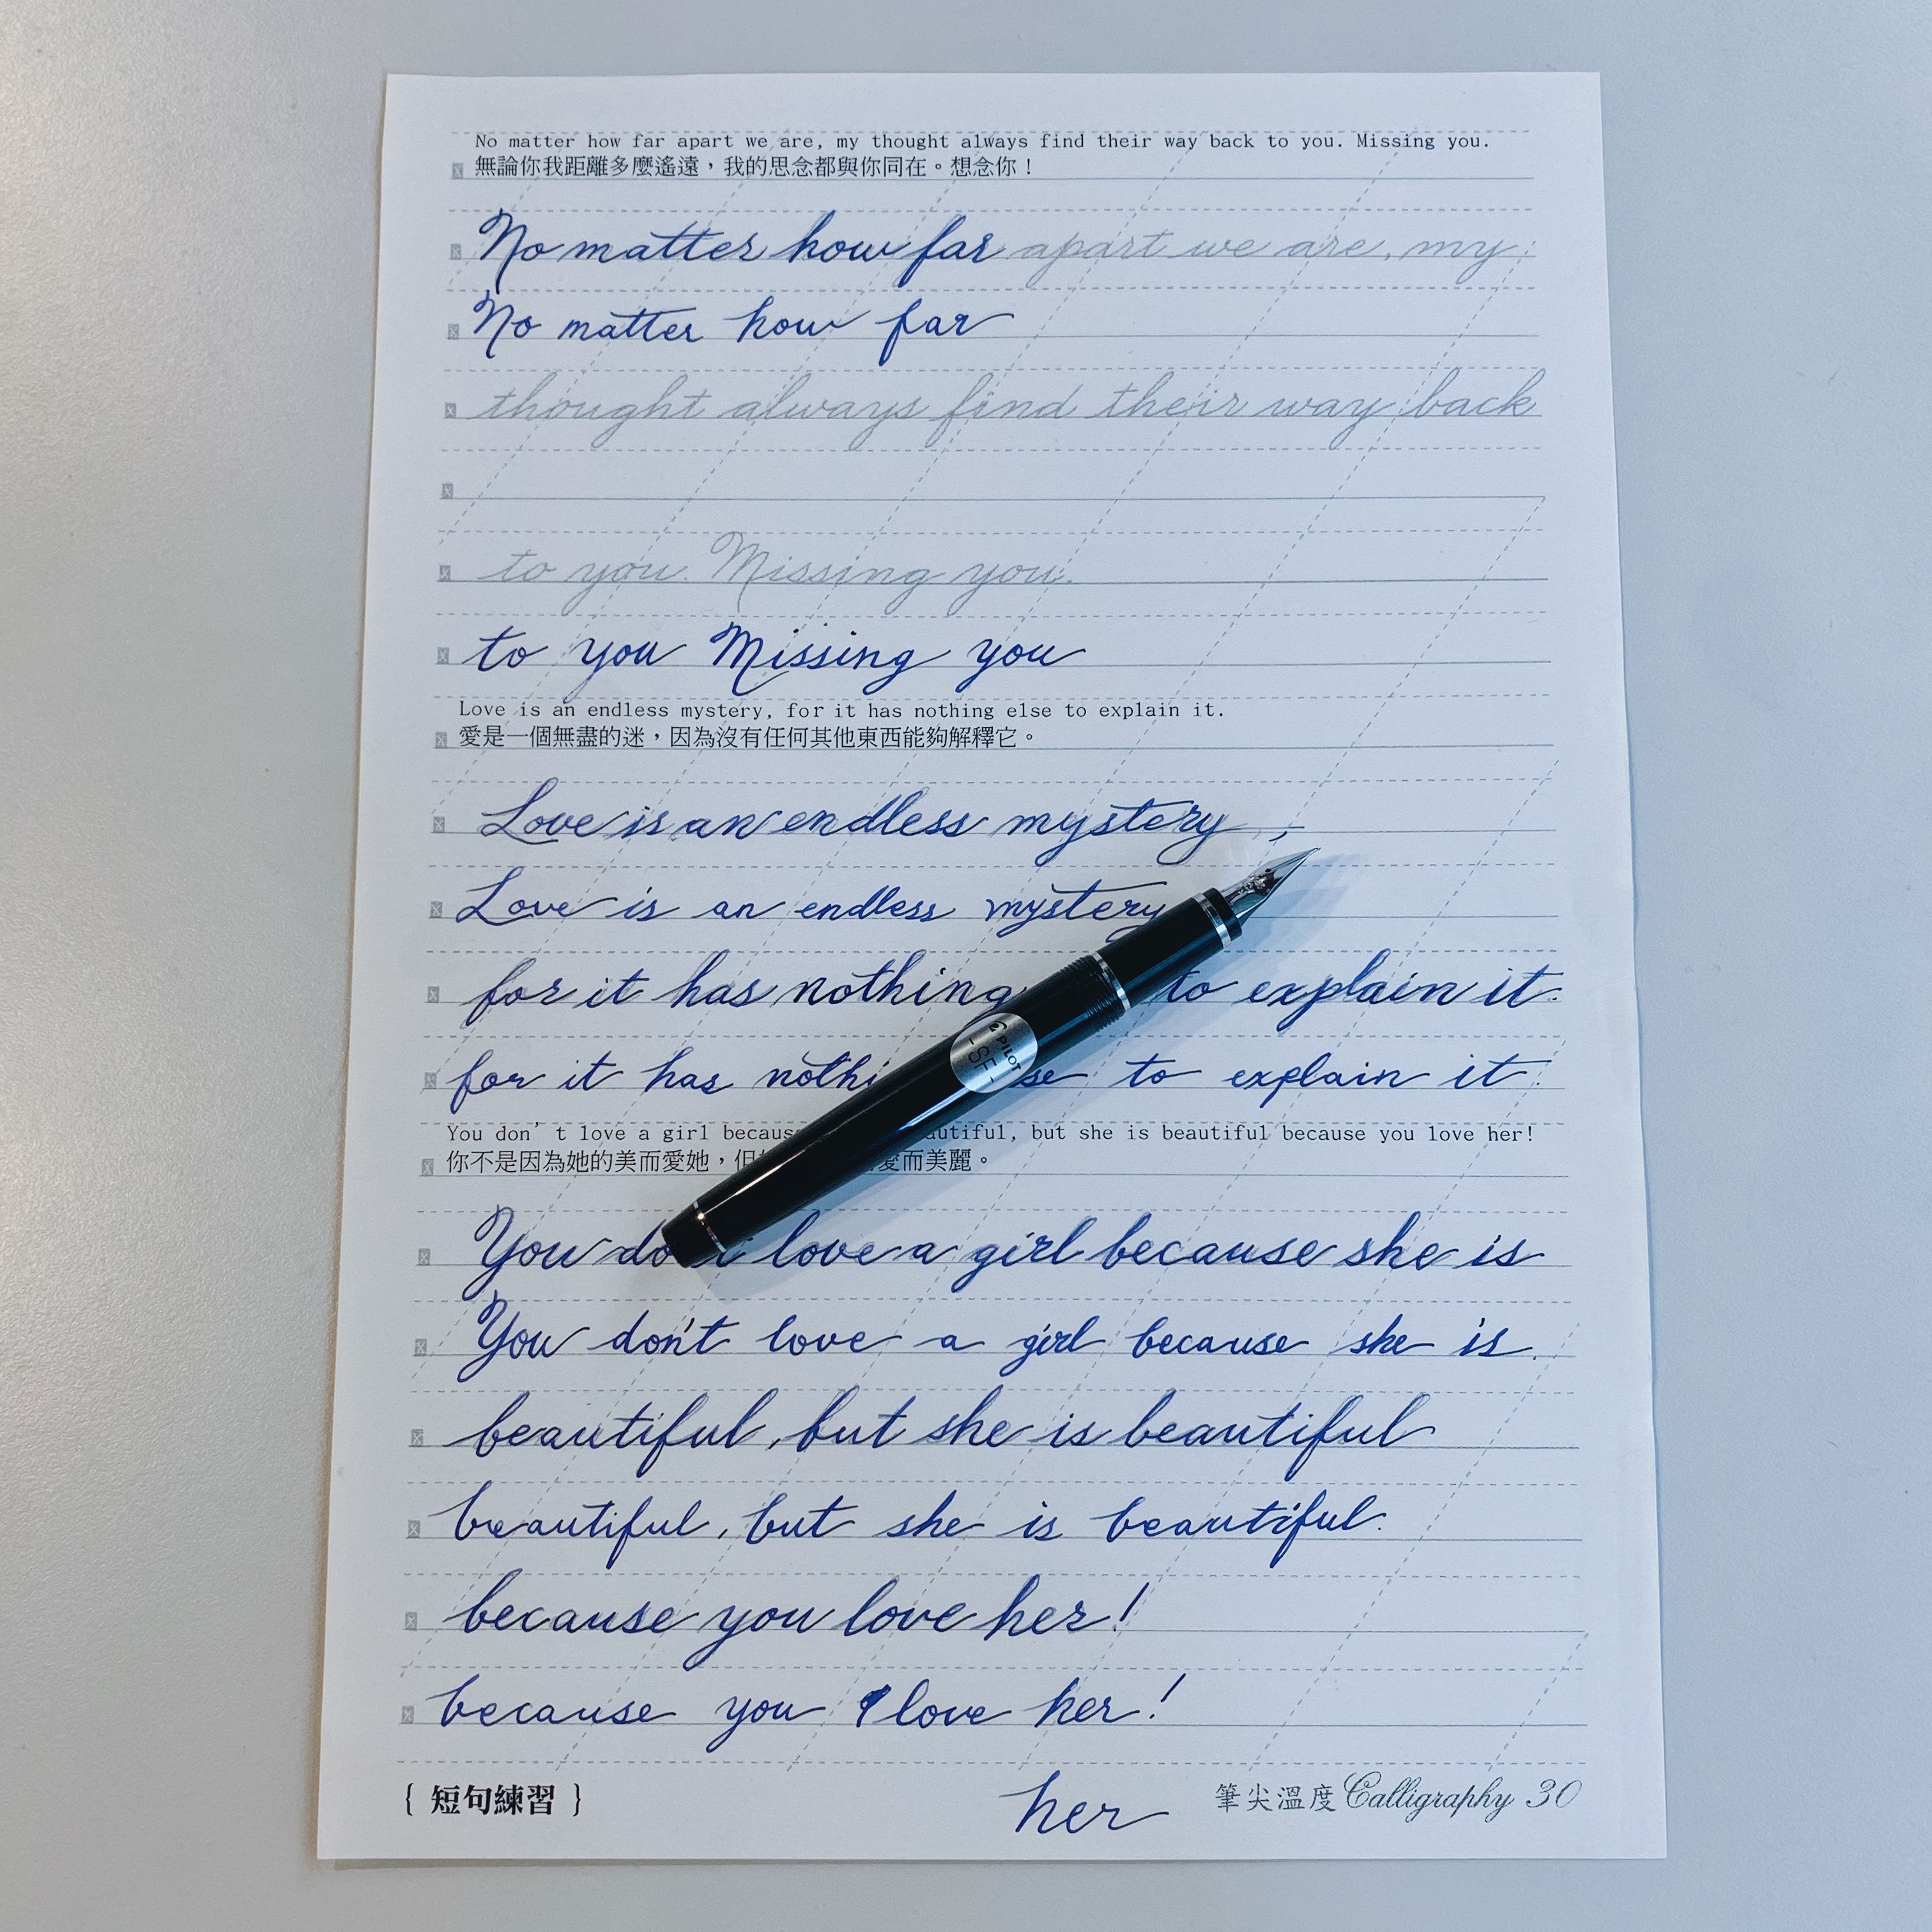 No matter how far apart we are, my thought always find their way back to you. Missing you.
無論你我距離多麼遙遠，我的思念都與你同在。想念你！
No matter how far apart we are, my
No matter how far
thought always find their way back
to you. Missing you.
to you Missing you
Love is an endless mystery, for it has nothing else to explain it.
愛是一個無盡的迷，因為沒有任何其他東西能夠解釋它。
Love is an endless mystery,
Love is an endless mystery
for it has nothing to explain it.
for it has to explain it.
PILOT
-SF-
You don't love a girl but she is beautiful because you love her!
你不是因為她的美而愛她，但愛而美麗。
You love a girl because she is
You don't love a girl because she is
beautiful, but she is beautiful
beautiful, but she is beautiful.
because you love her!
because you love her!
her
{ 短句練習 }
筆尖溫度 Calligraphy 30